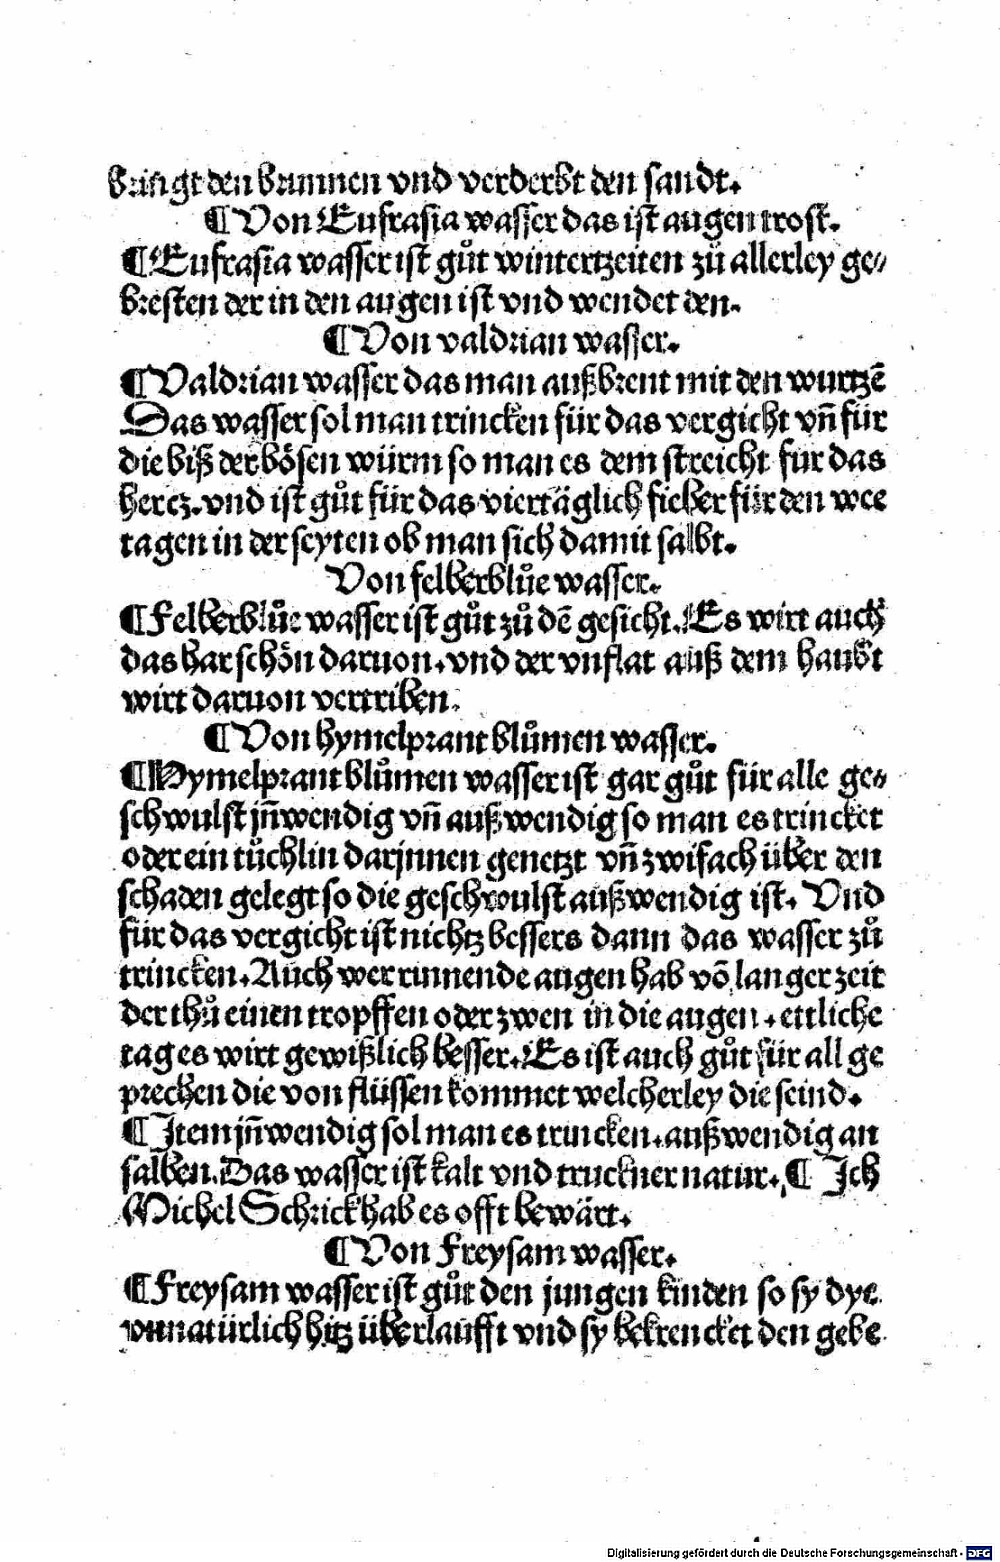 bringt den brunnen vnd verderbt den sandt.
¶Von Eufrasia wasser das ist augen trost.
¶Eufrasia wasser ist gůt wintertzeiten zů allerley ge⸗
bresten der in den augen ist vnd wendet den.
¶Von valdrian wasser.
¶Valdrian wasser das man außbrent mit den wurtzē
Das wasser sol man trincken für das vergicht vn̄ für
die biß der bösen würm so man es dem streicht für das
hertz. vnd ist gůt für das viertäglich fieber für den wee
tagen in der seyten ob man sich damit salbt.
Von felberblůe wasser.
¶Felberblůe wasser ist gůt zů dē gesicht. Es wirt auch
das har schön daruon. vnd der vnflat auß dem haubt
wirt daruon vertriben.
¶Von hymelprant blůmen wasser.
¶Hymelprant blůmen wasser ist gar gůt für alle ge⸗
schwulst jn̄wendig vn̄ außwendig so man es trincket
oder ein tůchlin darjnnen genetzt vn̄ zwifach über den
schaden gelegt so die geschwulst außwendig ist. Vnd
für das vergicht ist nichtz bessers dann das wasser zů
trincken. Auch wer rinnende augen hab vō langer zeit
der thů einen tropffen oder zwen in die augen. ettliche
tag es wirt gewißlich besser. Es ist auch gůt für all ge
prechen die von flüssen kommet welcherley die seind.
¶Item jn̄wendig sol man es trincken. außwendig an
salben. Das wasser ist kalt vnd truckner natur. ¶ Ich
Michel Schrick hab es offt bewärt.
¶Von Freysam wasser.
¶Freysam wasser ist gůt den jungen kinden so sy dye
vnnatürlich hitz überlaufft vnd sy bekrencket den gebe
Digitalisierung gefördert durch die Deutsche Forschungsgemeinschaft - DFG